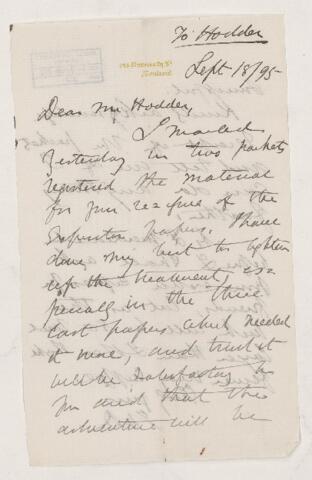 To Hodder
Sept 18/95
Dear Mr Hodder,
I mailed
Yesterday in two packets
registered the material
for your reissue of the
papers. I have
done my best to lighten
up the treatment, es-
pecially in the three
last papers which needed
it more, and trust it
will be satisfactory to
you and that the
adventure will be